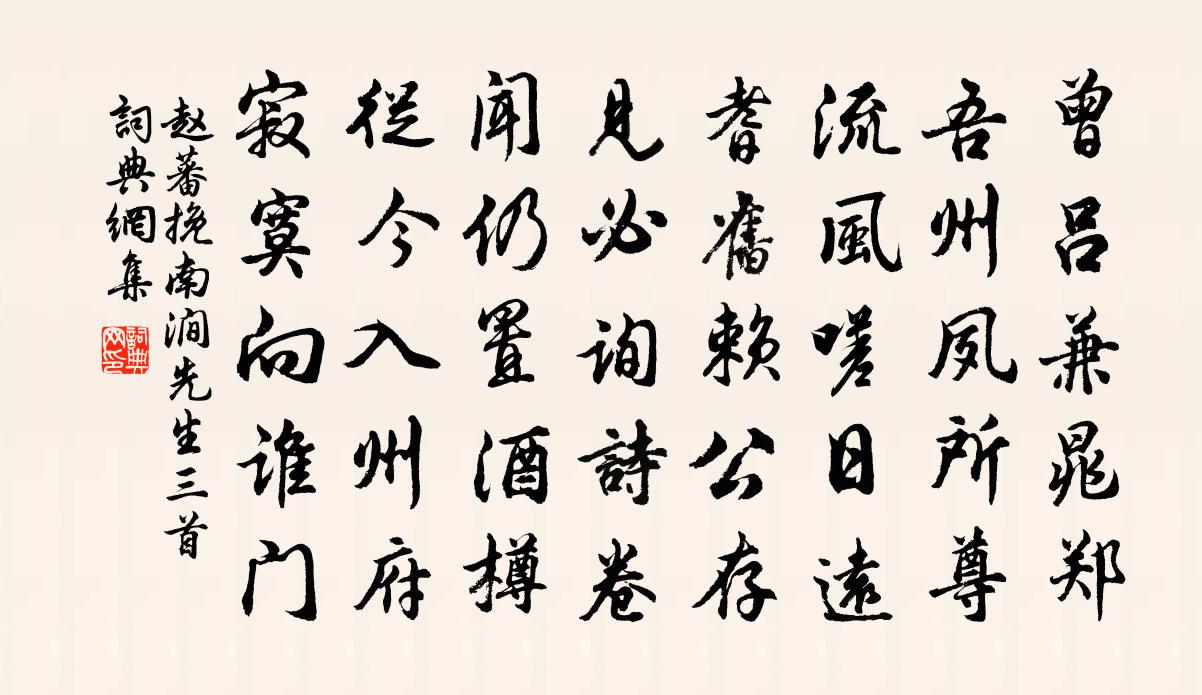 曾吕兼晁郑
吾州夙所尊
流風嗟日遠
耆舊赖公存
見必詢詩卷
闻仍置酒樽
從今入州府
寂寞向谁门
赵蕃挽南澗先生三首
詞典網集
詞典网印